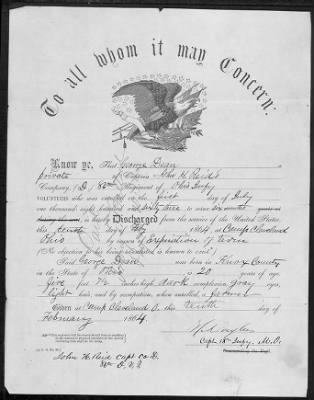 To all whom it may Concern:
Know ye, That George Dean a
private of Captain John H. Reid's
Company, (D,) 86th Regiment of Ohio Infy
VOLUNTEERS who was enrolled on the first day of July
one thousand eight hundred and sixty three to serve six months years or
during the war, is hereby Discharged from the service of the United States,
this tenth day of Feby, 1864, at Camp Cleveland
Ohio by reason of Expiration of term
(No objection to his being re-enlisted is known to exist.)
Said George Dean was born in Knox County
in the State of Ohio, is 20 years of age,
five feet 7½ inches high, dark complexion, gray eyes,
light hair, and by occupation, when enrolled, a farmer
Given at Camp Cleveland O. this tenth day of
February 1864.
Capt. 18" Infy. M.O.
Commanding the Reg't.
John H. Reid Capt Co D.
86th O.V.I